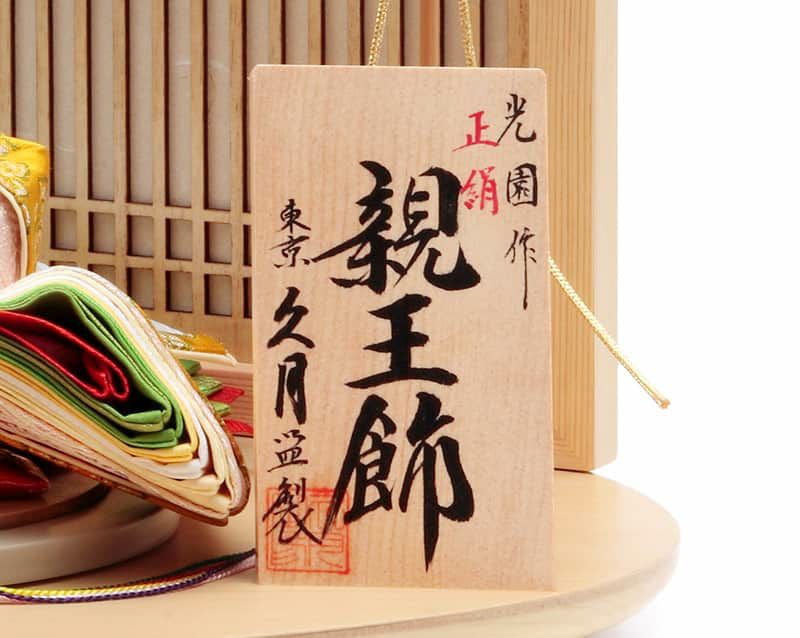 光園作
正絹
親王飾
東京 久月監製